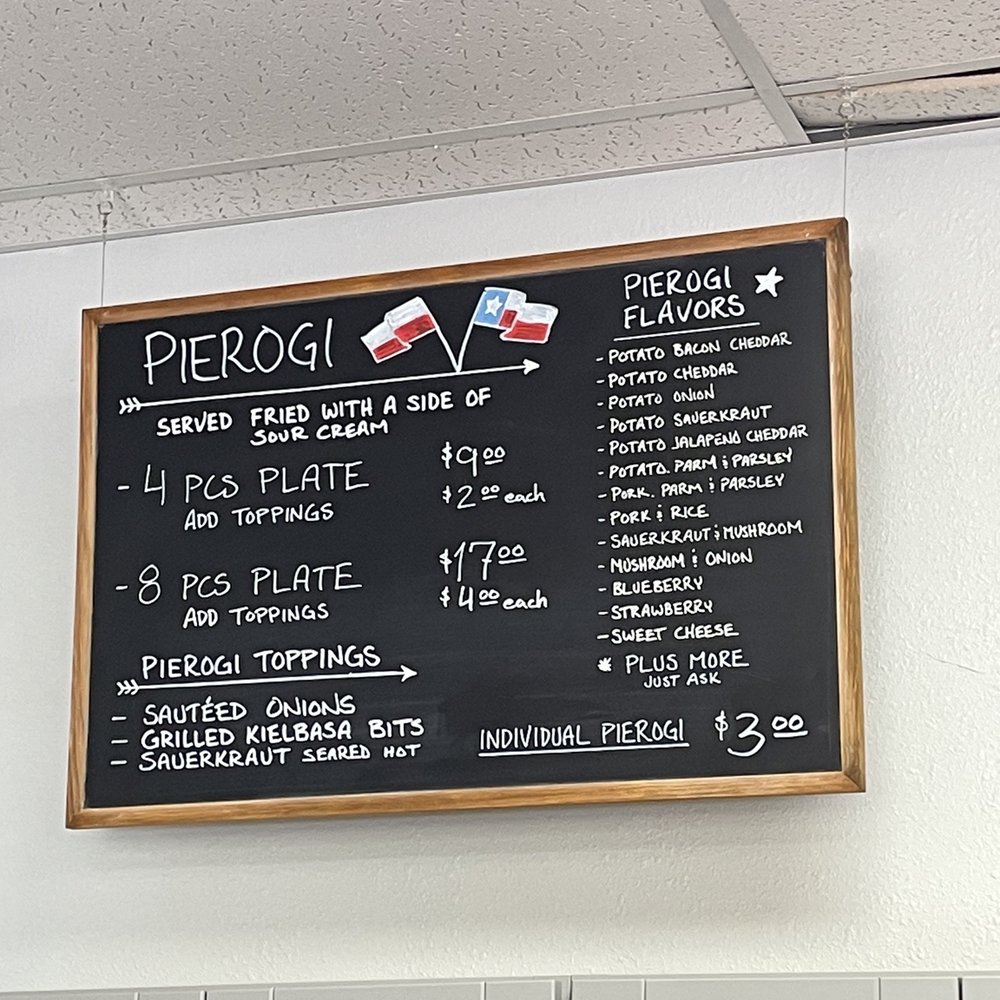 PIEROGI
SERVED FRIED WITH A SIDE OF
SOUR CREAM
- 4 PCS PLATE $9.00
ADD TOPPINGS $2.00 each
- 8 PCS PLATE $17.00
ADD TOPPINGS $4.00 each
PIEROGI TOPPINGS
- SAUTÉED ONIONS
- GRILLED KIELBASA BITS
- SAUERKRAUT SEARED HOT
PIEROGI
FLAVORS
- POTATO BACON CHEDDAR
- POTATO CHEDDAR
- POTATO ONION
- POTATO SAUERKRAUT
- POTATO JALAPEÑO CHEDDAR
- POTATO. PARM & PARSLEY
- PORK. PARM & PARSLEY
- PORK & RICE
- SAUERKRAUT & MUSHROOM
- MUSHROOM & ONION
- BLUEBERRY
- STRAWBERRY
- SWEET CHEESE
* PLUS MORE
JUST ASK
INDIVIDUAL PIEROGI $3.00